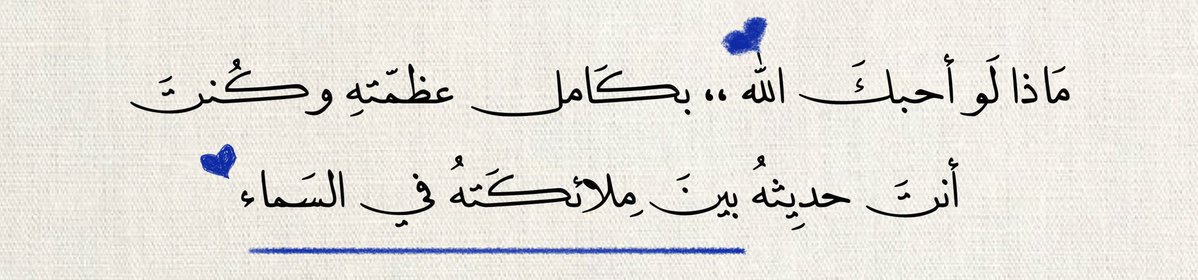 مَاذا لَو أحبكَ الله ،، بكَامل عظمّتهِ وكُنتَ
أنتَ حدِيثهُ بينَ مِلائكَتهُ في السَماء